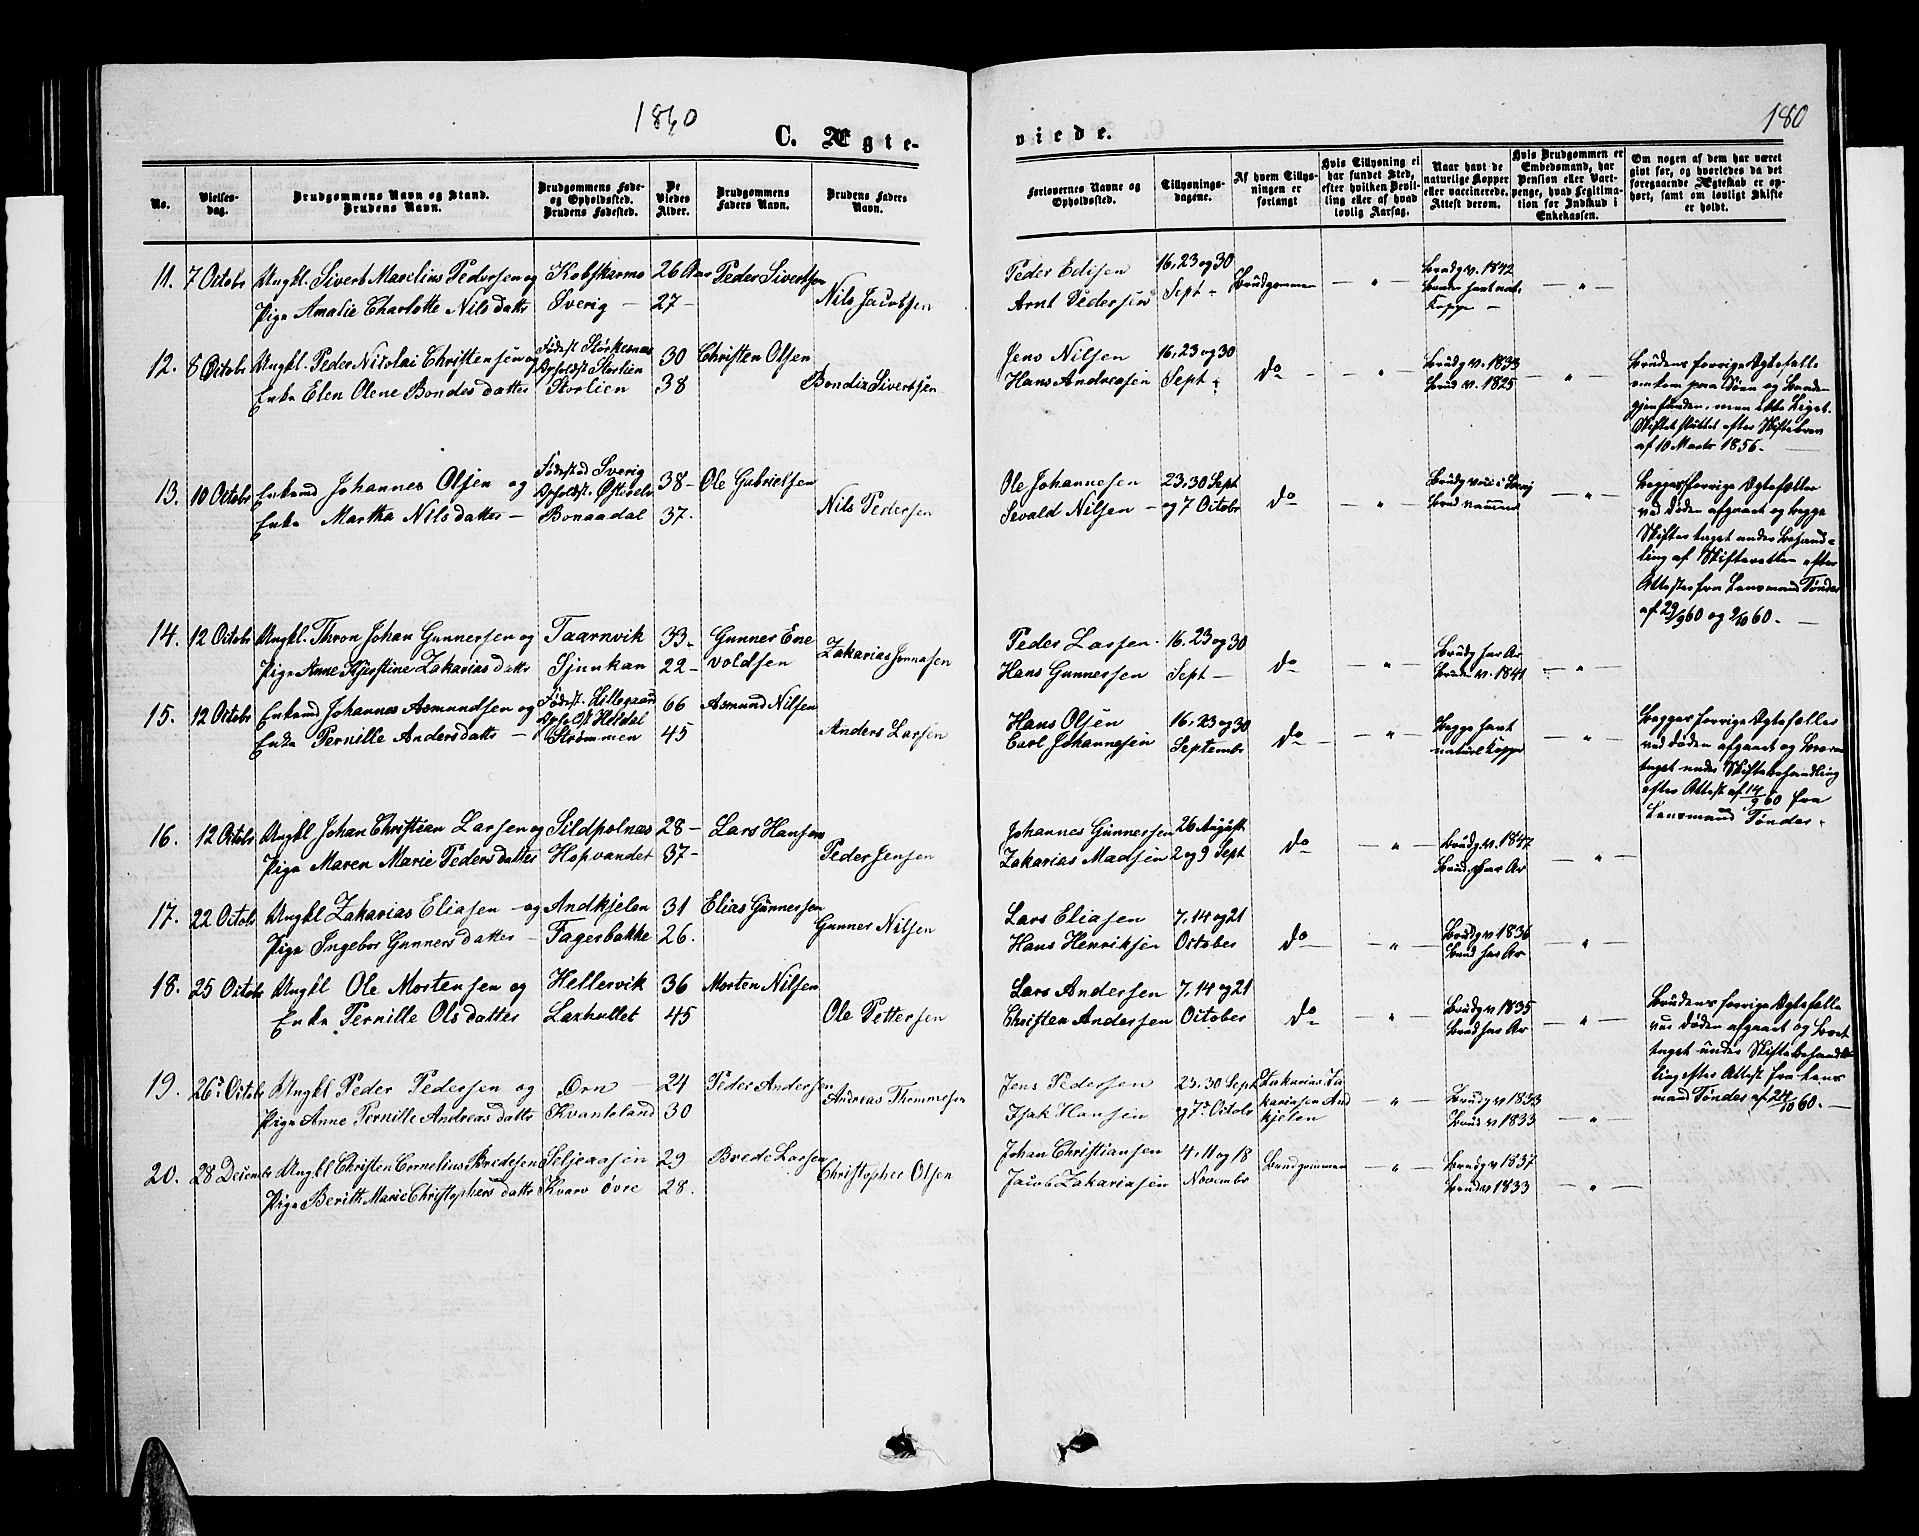 1860
180
C. Ægte-
viede.
No.
Vielses-
dag.
Brudgommens Navn og Stand.
Brudens Navn.
Brudgommens Føde-
og Opholdssted.
Brudens Fødested.
De
Viedes
Alder.
Brudgommens
Faders Navn.
Brudens Faders
Navn.
Forlovernes Navne og
Opholdssted.
Tillysnings-
dagene.
Af hvem Tillys-
ningen er
forlangt
Hvis Tillysning ei
har fundet Sted,
efter hvilken Bevil-
ling eller af hvad
lovlig Aarsag.
Naar havt de
naturlige Kopper
eller vaccinerede.
Attest derom.
Hvis Brudgommen er
Embedsmand, har
Pension eller Vart-
penge, hvad Legitima-
tion for Indskud i
Enkekassen.
Om nogen af dem har været
givt før, og hvorledes da det
foregaaende Ægteskab er op-
hørt, samt om lovligt Skifte
er holdt.
11. 7 Octobr Ungkl. Sivert Marelius Pedersen og Kobskarmo 26 Aar Peder Sivertsen
Pige Amalie Charlotte Nilsdatter Sverig — 27 — Nils Jacobsen
Peder Edisen 16, 23 og 30 Brudgommen — " — Brudg v. 1842 — " —
Arnt Pedersen Sept — Bruden havt nat.
Kopper —
12. 8 Octobr Ungkl. Peder Nikolai Christensen og Fødest Storkesnæs 30 Christen Olsen
Opholdst Storlien
Enke Elen Olene Bondesdatter Storlien 38 Bondix Sivertsen
Jens Nilsen 16, 23 og 30 do — " — Brudg v. 1833 — " —
Hans Andreasen Sept — Brud v. 1825
Brudens forrige Ægtefælle
omkom paa Søen og Baaden
gjenfunden, men ikke Liget.
Skiftet sluttet efter Skiftebrev
af 10 Marts 1856. —
13. 10 Octobr Enkemd Johannes Olsen og Fødested Sverig 38 — Ole Gabrielsen
Enke Martha Nilsdatter — Bonaadal 37. Nils Pedersen
Ole Johannesen 23, 30 Sept do — " — — " —
Sivald Nilsen — og 7 Octobr
Begges forrige Ægtefæller
ved Døden afgaaet og begge
Skifter taget under Behand-
ling af Skifteretten efter
Attester fra Lensmand Tønder
af 29/9 60 og 2/10 60. —
14. 12 Octobr Ungkl. Thron Johan Gunnersen og Taarnvik 33. Gunner Ene
Pige Anne Kjerstine Zakariasdatter Sjunkan 22 — voldsen Zakarias Jonnasen
Peder Larsen 16. 23 og 30 do — " — Brudg har Ar — " —
Hans Gunnersen Sept — Bruden v. 1841
15. 12 Octobr Enkemd Johannes Asmundsen og Fødest. Lillegaard 66 Asmund Nilsen
Opholdst Heldal
Enke Pernille Andersdatter — Strømmen 45 Anders Larsen
Hans Olsen 16, 23 og 30 do — " — Begge havt — " —
Carl Johannesen Septembr naturl Kopper
Begges forrige Ægtefæller
ved Døden afgaaet og Boerne
taget under Skiftebehandling
efter Attest af 14/9 60 fra
Lensmand Tønder.
16. 12 Octobr Ungkl Johan Christian Larsen og Sildpolnæs 28 — Lars Hansen
Pige Maren Marie Pedersdatter Hopvandet 37 — Peder Jensen
Johannes Gunnersen 26 August do — " — Brudg v. 1847 — " —
Zakarias Madsen 2 og 9 Sept Brud. har Ar
17. 22 Octobr Ungkl Zakarias Eliasen — og Andkjelen 31 Elias Gunnersen
Pige Ingebor Gunnersdatter — Fagerbakke 26. Gunner Nilsen
Lars Eliasen 7, 14 og 21 do — " — Brudg v 1836 — " —
Hans Henriksen October Brud har Ar
18. 25 Octobr Ungkl Ole Mortensen og Hellervik 36 Morten Nilsen
Enke Pernille Olsdatter Laxhullet 45 Ole Pettersen
Lars Andersen 7, 14 og 21 do — " — Brudg v 1835 — " —
Christen Andersen October Brud har Ar
Brudens forrige Ægtefælle
ved Døden afgaaet og Boet
taget under Skiftebehand-
ling efter Attest fra Lens
mand Tønder af 24/10 60. —
19. 26. Octobr Ungkl Peder Pedersen og Ørn — 24 Peder Andersen
Pige Anne Pernille Andreasdatter Kvanteland 30 Andreas Thommesen
Jens Pedersen 23, 30 Sept Zakarias Za
Isak Hansen og 7 Octobr kariasen And — " — Brudg v 1833
kjelen Brud v 1833 — " —
20. 28 Decembr Ungkl Christen Cornelius Bredesen Seljeaasen 29 Brede Larsen
Pige Berith Marie Christophersdatter Kvarv øvre 28. Christopher Olsen
Johan Christiansen 4, 11 og 18 Brudgommen — " — Brudg v 1837
Jacob Zakariasen Novembr Brud v 1833 — " —